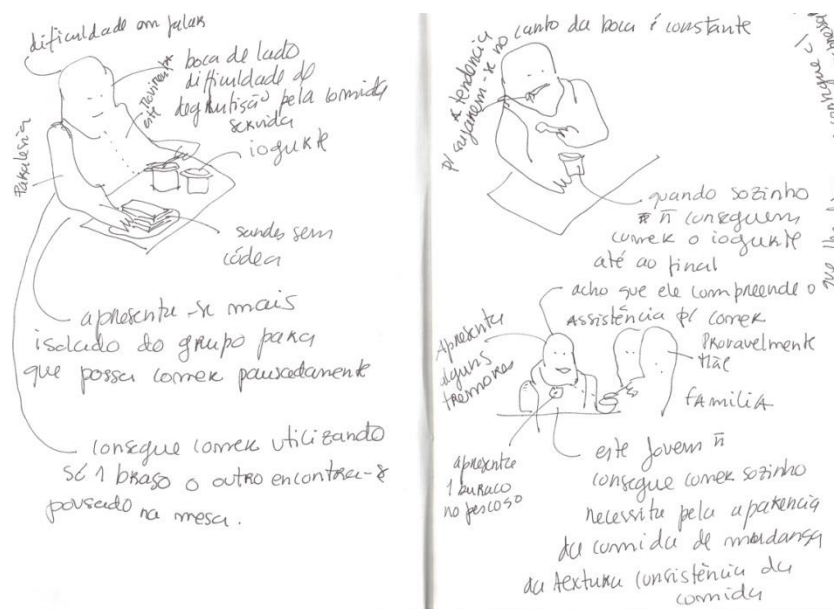 dificuldade em falar
boca de lado
dificuldade de
deglutição pela comida
servida
iogurte
Paralesia
sandes sem
côdea
apresenta-se mais
isolado do grupo para
que possa comer pausadamente
consegue comer utilizando
só 1 braço o outro encontra-se
pousado na mesa.
tendencia
p/ sujarem-se no
canto da boca é constante
quando sozinho
ñ conseguem
comer o iogurte
até ao final
acho que ele compreende o
Assistência p/ comer
Provavelmente
mãe
família
Apresenta
alguns
tremores
apresenta
1 buraco
no pescoso
este jovem ñ
consegue comer sozinho
necessita pela aparencia
da comida de mudança
da textura consistência da
comida
consegue